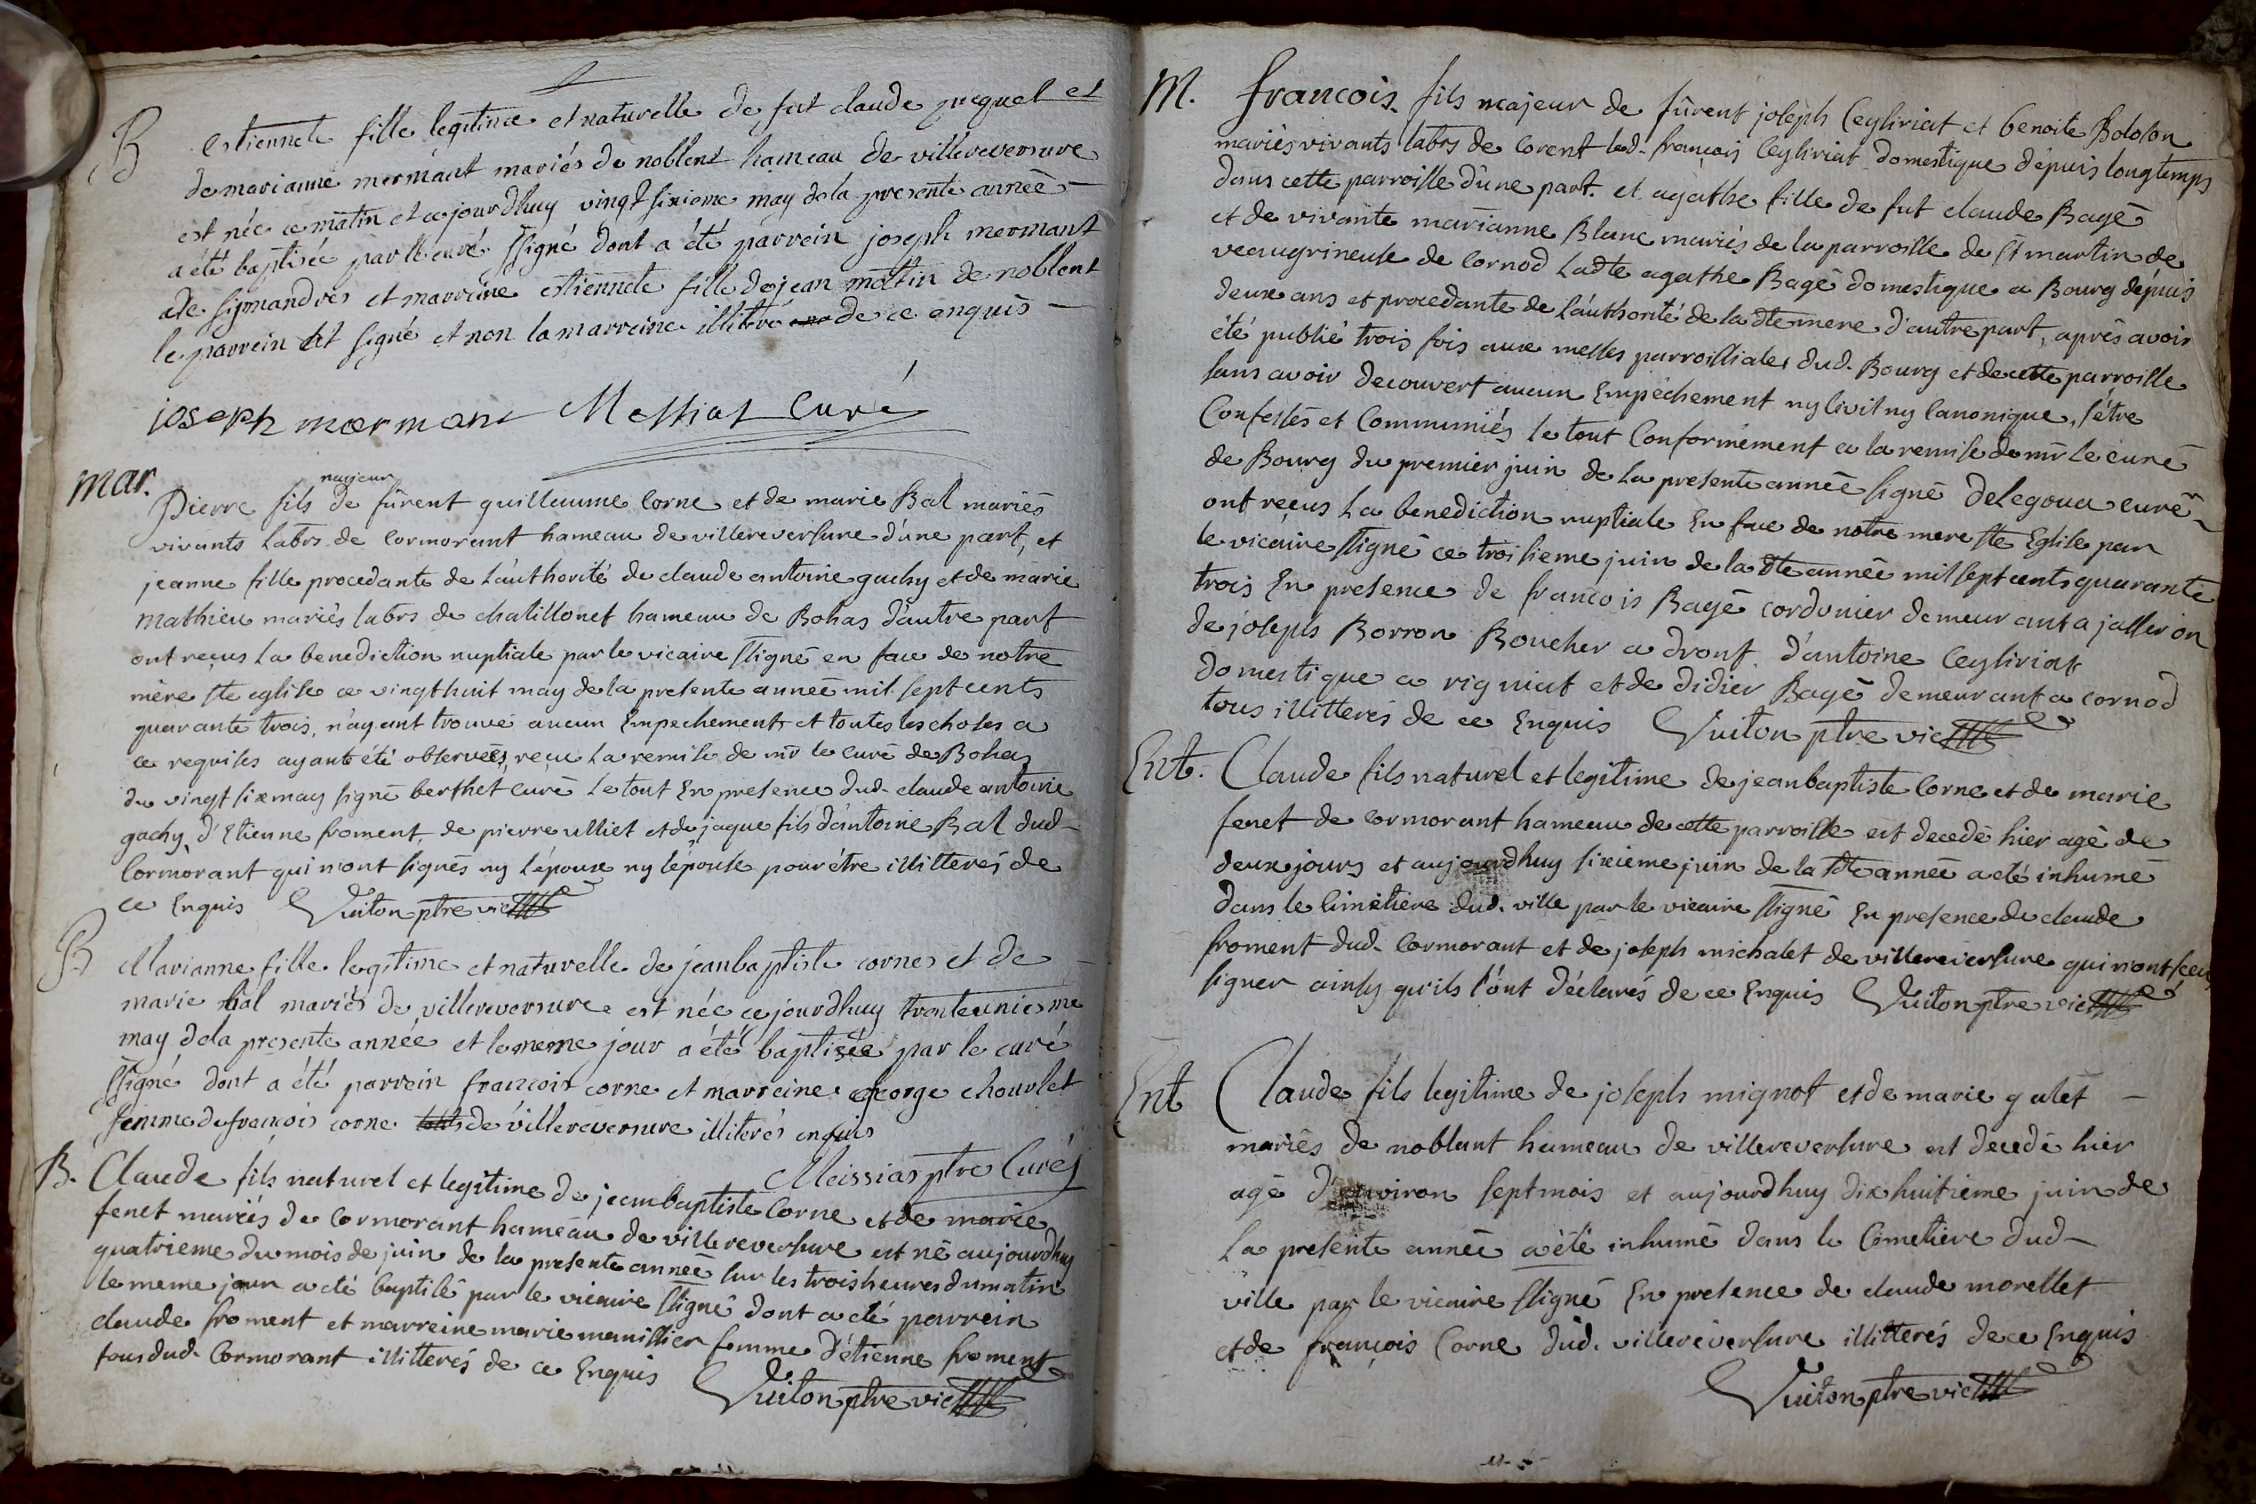 B
estiennete fille legitime et naturelle de fut claude puquel et
de marianne mermant mariés de noblens hameau de villereversure
est née ce matin et ce jourdhuy vingt sixieme may de la presente année
a été baptisée par le curé ssigné dont a été parrein joseph mermant
de simandres et marreine estiennete fille de jean matin de noblent
le parrein at signé et non la marreine illitéré de ce enquis
joseph mœrmant Messias Curé
mar.
majeur
Pierre fils de fûrent guillaume Corne et de marie Bal mariés
vivants labrs de Cormorant hameau de villereversure d'une part, et
jeanne fille procedante de l'authorité de claude antoine gachy et de marie
Mathieu mariés labrs de chatillonet hameau de Bohas d'autre part
ont reçus La benediction nuptiale par le vicaire ssigné en face de notre
mère ste eglise ce vingt huit may de la presente année mil sept cents
quarante trois, n'ayant trouvé aucun Empechement et toutes les choses a
ce requises ayant été observées, reçu La remise de mr le Curé de Bohas
du vingt six may signé berthet Curé Le tout En presence dud. claude antoine
gachy, d'Etienne froment, de pierre ulliet et de jaque fils d'antoine Bal dud.
Cormorant qui n'ont signés ny l'époux ny l'épouse pour être illitterés de
ce Enquis Vuiton ptre vic
B
Marianne fille legitime et naturelle de jeanbaptiste cornes et de
marie bal mariés de villereversure est née ce jourdhuy trente unieme
may de la presente année et le meme jour a été baptisée par le curé
ssigné dont a été parrein francois corne et marreine george chouvlet
femme de francois corne de villereversure illiterés enquis
Messias ptre Curé
B. Claude fils naturel et legitime de jeanbaptiste Corne et de marie
fenet mariés de Cormorant hameau de villereversure est né aujourdhuy
quatrieme du mois de juin de la presente année sur les trois heures du matin
le meme jour a été baptisé par le vicaire ssigné dont a été parrein
claude froment et marreine marie manillier femme d'étienne froment
tous dud. Cormorant illitterés de ce Enquis Vuiton ptre vic
M. francois fils majeur de fûrent joseph Ceyliriat et benoite Boloson
mariés vivants labrs de Corent led. françois Ceyliriat domestique dépuis longtemps
dans cette parroisse d'une part. et agathe fille de fut claude Bagé
et de vivante marianne Blanc mariés de la parroisse de st martin de
veaugrineuse de Cornod Ladte agathe Bagé domestique a Bourg dépuis
deux ans et procedante de L'authorité de la dte mere d'autre part, aprés avoir
été publié trois fois aux messes parroissiales dud. Bourg et de cette parroisse
sans avoir decouvert aucun Empéchement ny Civil ny Canonique, s'étre
Confessés et Communiés le tout Conformément a la remise de mr le curé
de Bourg du premier juin de La presente année signé delegoua curé
ont reçus La benediction nuptiale En face de notre mere ste Eglise par
le vicaire ssigné ce troisieme juin de la dte année mil sept cents quarante
trois En presence de francois Bagé cordonier demeurant a jasseron
de joseph Borron Boucher a drout d'antoine Ceyliriat
domestique a rigniat et de didier Bagé demeurant a cornod
tous illitterés de ce Enquis Vuiton ptre vic
Ent. Claude fils naturel et legitime de jeanbaptiste Corne et de marie
fenet de Cormorant hameau de cette parroisse est decedé hier agé de
deux jours et aujourdhuy sixieme juin de la dte année a été inhumé
dans le Cimetière dud. ville par le vicaire ssigné En presence de claude
froment dud. Cormorant et de joseph michalet de villereversure qui n'ont sceu
signer ainsy qu'ils l'ont déclarés de ce Enquis Vuiton ptre vic
Ent Claude fils legitime de joseph mignot et de marie gulet
mariés de noblant hameau de villereversure est decedé hier
agé d'environ sept mois et aujourdhuy dix huitieme juin de
La presente année a été inhumé dans le Cimetière dud.
ville par le vicaire ssigné En presence de claude morellet
et de françois Corne dud. villereversure illitterés de ce Enquis
Vuiton ptre vic